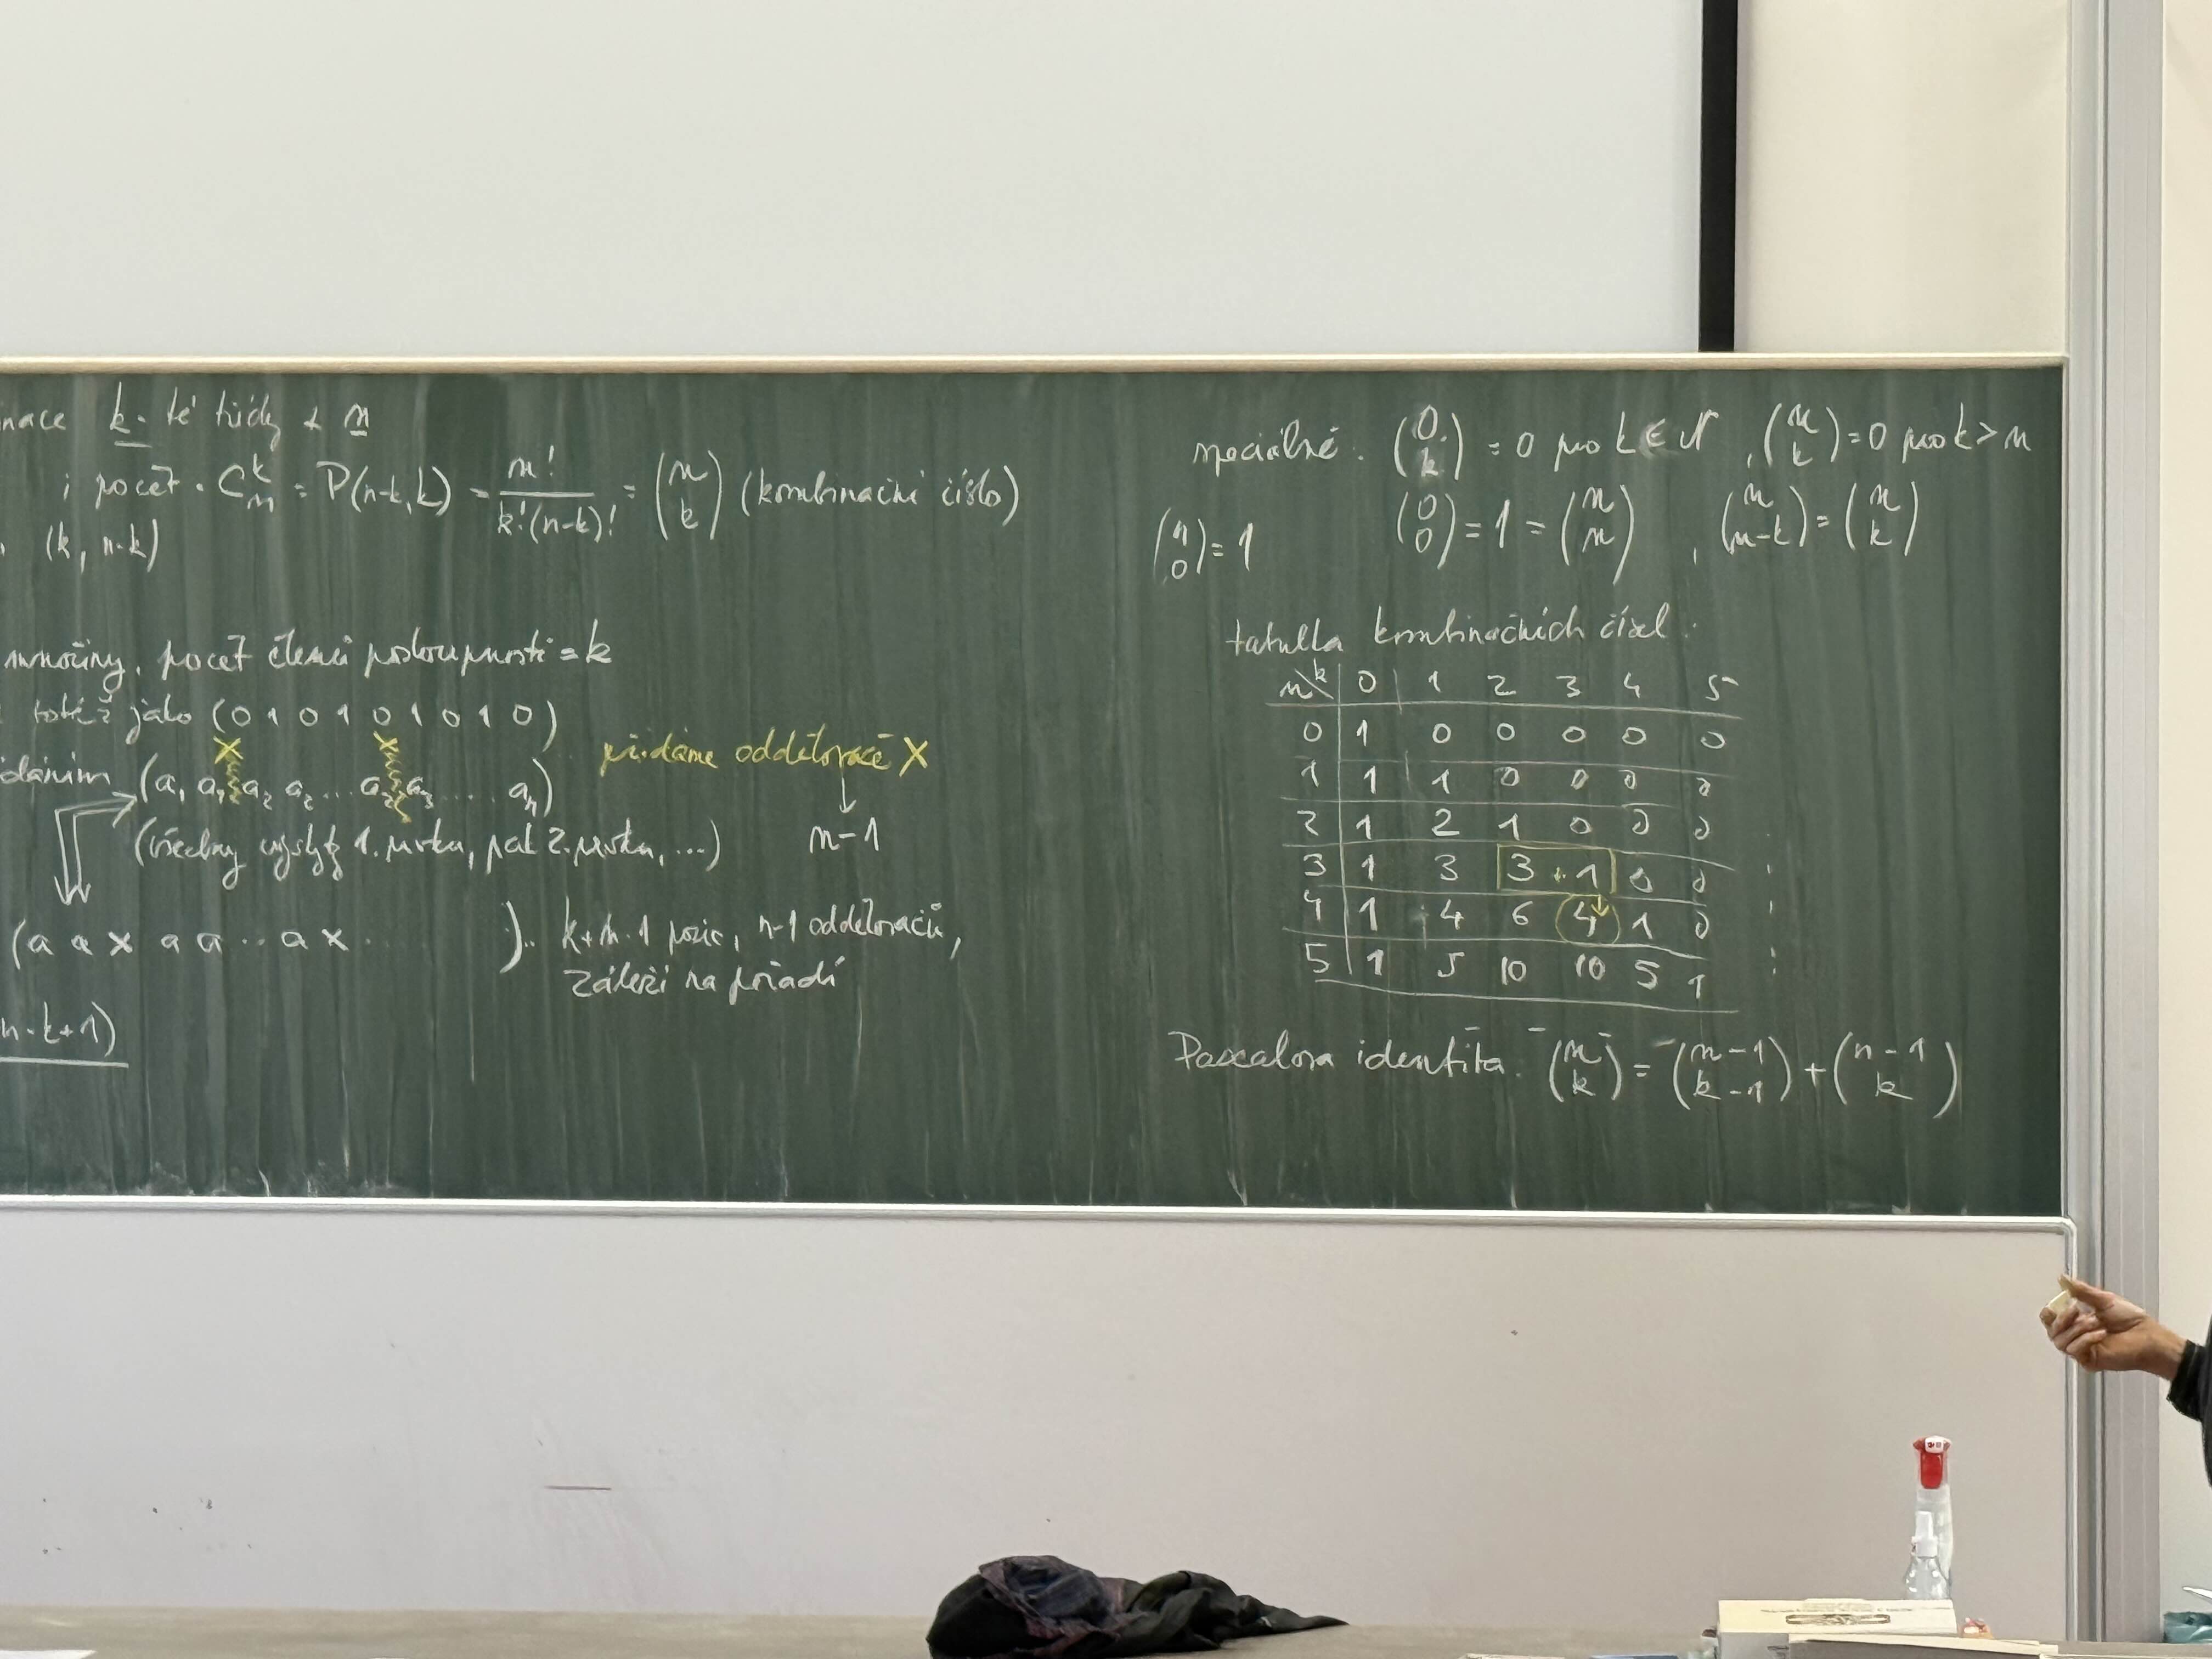 nace k-té třídy z n
i počet . C_n^k = P(n-k,k) = n!/(k!(n-k)!) = (n k) (kombinační číslo)
(k, n-k)
množiny, počet členů posloupnosti = k
totéž jako (0 1 0 1 0 1 0 1 0)
x x
přidáme oddělovače X
(a₁ a₁ a₂ a₂ ... a₂ a₃ .... aₙ)
(všechny výskyty 1. prvku, pak 2. prvku, ...)
↓
n-1
(a a x a a .. a x ..... ).. k+n-1 pozic, n-1 oddělovačů,
záleží na pořadí
n-k+1)
speciálně: (0 k) = 0 pro k ∈ N, (n k) = 0 pro k > n
(n 0) = 1 (0 0) = 1 = (n n), (n n-k) = (n k)
tabulka kombinačních čísel:
n\k 0 1 2 3 4 5
0 1 0 0 0 0 0
1 1 1 0 0 0 0
2 1 2 1 0 0 0
3 1 3 3 + 1 0 0
4 1 4 6 4 1 0
5 1 5 10 10 5 1
Pascalova identita: (n k) = (n-1 k-1) + (n-1 k)